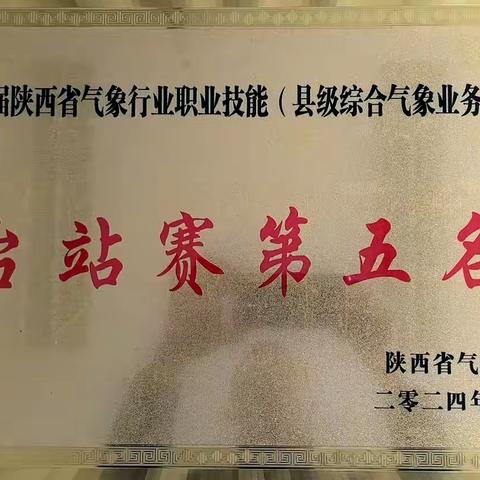 届陕西省气象行业职业技能（县级综合气象业务
台站赛第五名
陕西省气
二零二四年